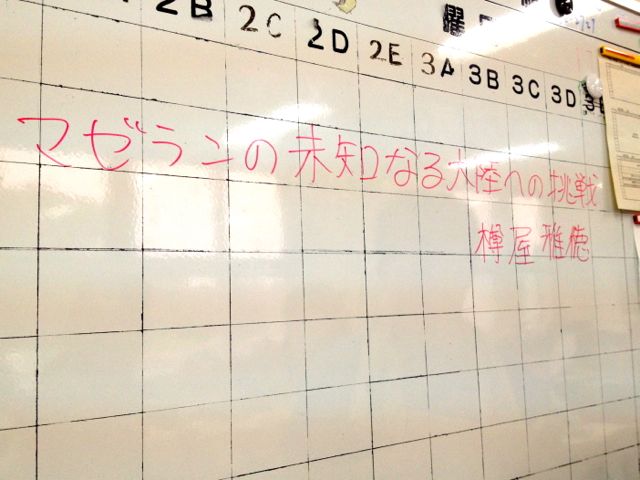 2B 2C 2D 2E 3A 3B 3C 3D 3E
マゼランの未知なる大陸への挑戦
樽屋雅徳